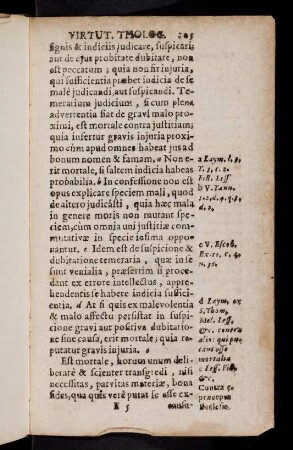 VIRTUT. THOLOG. 205
signis & indiciis judicare, suspicari,
aut de ejus probitate dubitare, non
est peccatum; quia non fit injuria,
qui sufficienti præbet indicia de se
malè judicandi, aut suspicandi. Te-
merarium judicium, si cum plena
advertentia fiat de gravi malo pro-
ximi, est mortale contra justitiam;
quia infertur gravis injuria proxi-
mo cùm apud omnes habeat jus ad
bonum nomen & famam. a Non e-
rit mortale, si saltem indicia habeas
probabilia. b In confessione non est
opus explicare speciem mali, quod
de altero judicâsti, quia hæc mala
in genere moris non mutant spe-
ciem, cùm omnia uni justitiæ com-
mutativæ in specie infima oppo-
nantur. c Idem est de suspicione &
dubitatione temeraria, quæ inse
sunt venialia, præsertim si proce-
dant ex errore intellectus, appre-
hendentis se habere indicia suffici-
entia. d At si quis ex malevolentia
& malo affectu persistat in suspi-
cione gravi aut positiva dubitatio-
ne sine causa, erit mortale; quia re-
putatur gravis injuria. e
Est mortale, horum unum deli-
beratè & scienter transgredi, nisi
necessitas, parvitas materiæ, bona
fides, qua quis verè putat se esse ex-
K 5
a Laym. l. 3.
T. 3. c. 2.
b V. Tann.
d. 2.
c V. Escob.
Ex. 10. c. 4.
n. 36.
d Laym. ex
S. Thom.
Mol. Less.
&c. contra
alios: qui pu-
tant esse
mortalia
e Less. Fill.
&c.
Contra 8.
præceptum